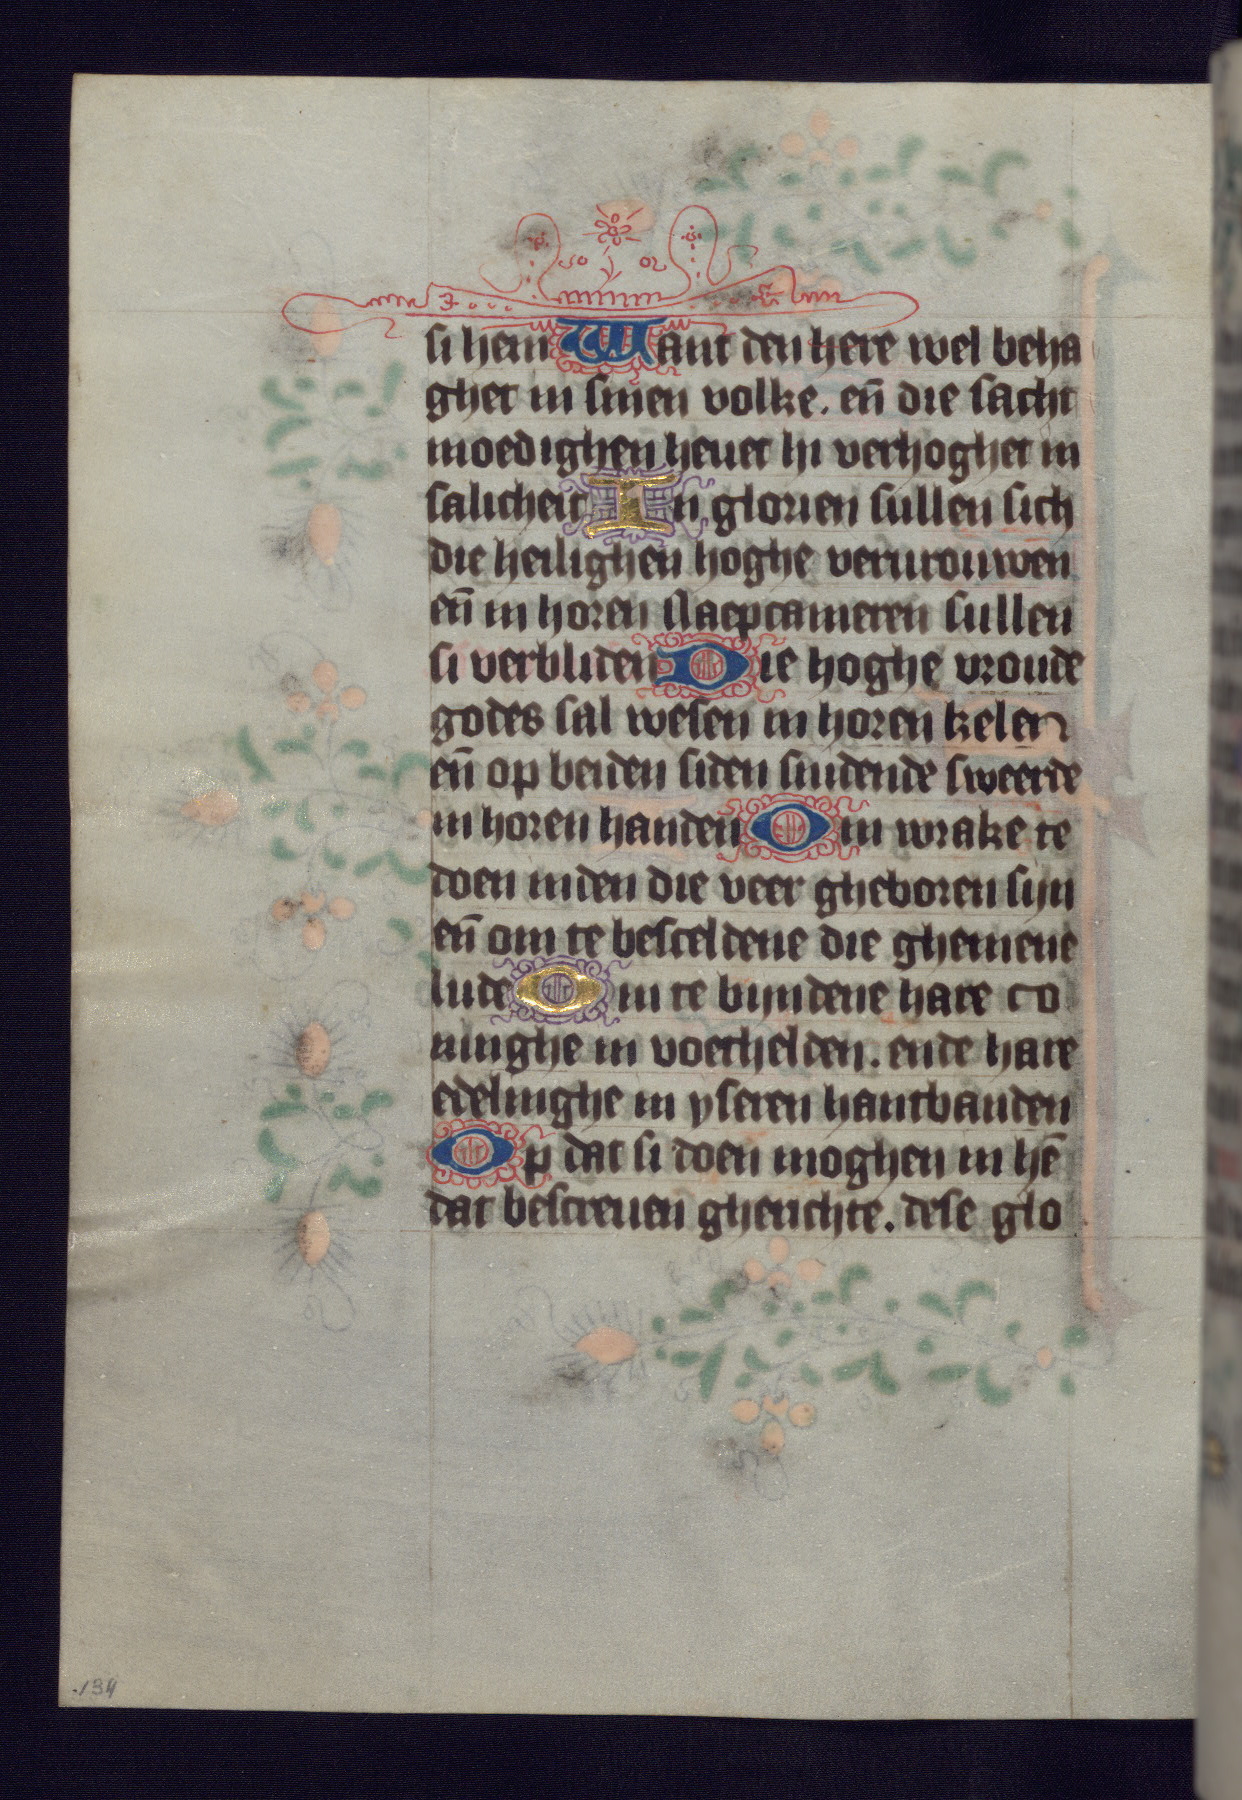 si hem Want den here wel beha
ghet in sinen volke. en̄ die sacht
moedighen heuet hi verhoghet in
salicheit In glorien sullen sich
die heilighen hoghe verurouwen
en̄ in horen slaepcameren sullen
si verbliden Die hoghe vroude
godes sal wesen in horen kelen
en̄ op beiden siden snidende sweerde
in horen handen Om wrake te
doen inden die veer gheboren sijn
en̄ om te besceldene die ghemene
lude Om te bijndene hare co
ninghe in voethelden. ende hare
edelinghe in yseren hantbanden
Op dat si doen moghen in hē
dat bescreuen gherichte. dese glo
134